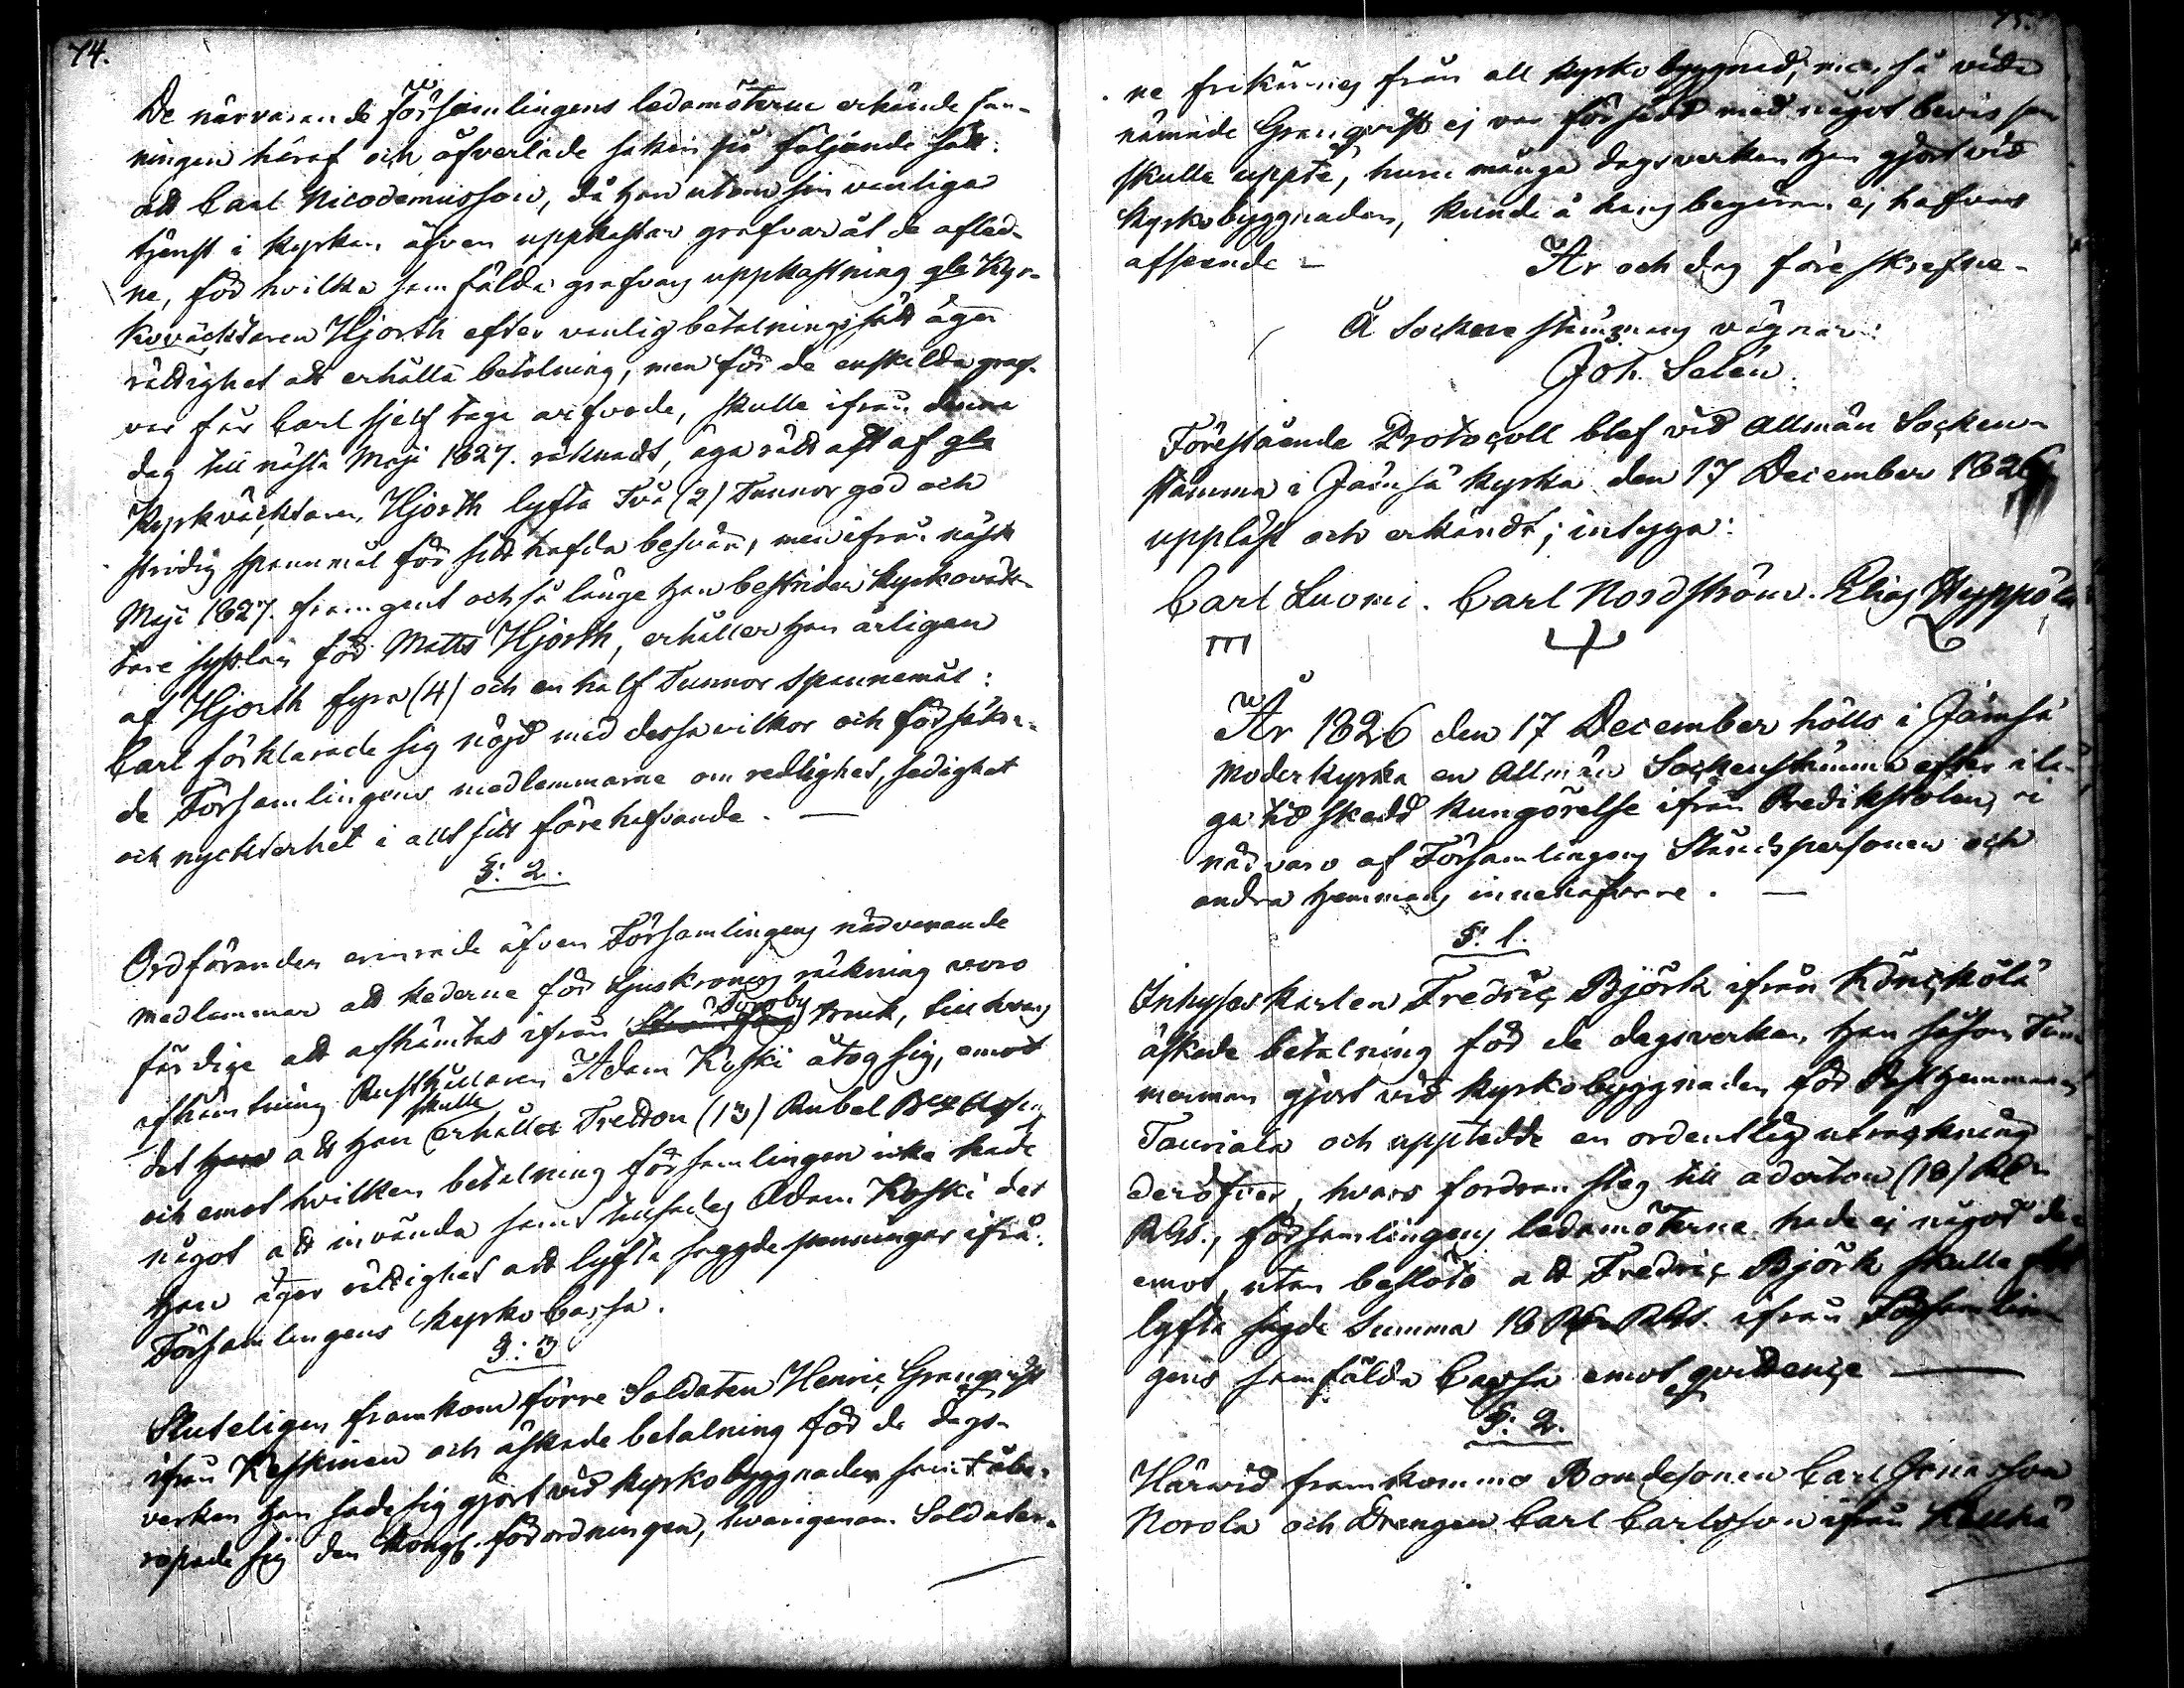 74.
De närvarande Församlingens ledamöterne erkände san-
ningen häraf och öfverlade saken på följande sätt:
att Carl Nicodemusson, då han utom sin vanliga
tjenst i kyrkan äfven uppkastar grafvar åt de afled-
ne, för hvilka samfälda grafvars uppkastning gla Kyr-
koväcktaren Hjorth efter vanlig betalningssätt äger
rättighet att erhålla betalning, men för de enskilda graf-
var får Carl sjelf taga arfvode, skulle ifrån denna
dag till nästa Maji 1827. räknadt, äga rätt att af gla
Kyrkväcktaren Hjorth lyfta Två (2) Tunnor god och
stridig spannmål för sitt hafda besvär, men ifrån nästa
Maji 1827. framgent och så länge han bestrider Kyrkováck-
tare sysslan för Matts Hjorth, erhåller han årligen
af Hjorth fyra (4) och en half Tunnor Spannemål:
Carl förklarade sig nöjd med dessa vilkor och försäkra-
de Församlingens medlemmarne om redlighet, sedighet
och nyckterhet i allt sitt förehafvande. —
§: 2.
Ordföranden erinrade äfven Församlingens närvarande
medlemmar att kederne för Ljuskronors räkning voro
färdige att afhämtas ifrån bruk, till hvars
afhämtning Rusthållaren Adam Koski åtog sig, emot
det han att han skulle erhålla Tretton (13) Rubel Bco Assig
och emot hvilken betalning församlingen icke hade
något att invända samt tillsades Adam Koski det
han äger rättighet att lyfta saggde penningar ifrå
Församlingens kyrko Cassa.
§: 3
Sluteligen framkom förre Soldaten Henric Granqvist
ifrån Keskinen och äskade betalning för de dags-
verken han sade sig gjort vid kyrkobyggnaden samt åbe-
ropade sig den Kongl. förordningen, hvarigenom Soldater-
ne frikännes från all kyrkobyggnad, men så vida
nämnde Granqvist ej var försedd med något bevis som
skulle uppte, huru många dagsverken han gjort vid
Kyrkobyggnaden, kunde å hans begäran ej hafvas
afseende – År och dag före skrefne.
Å Sockenestämmans vägnar:
Joh. Selén.
Förestående Protocoll blef vid Allmän Socken-
stämma i Jämsä kyrka den 17 December 1826
uppläst och erkändt; intyga:
Carl Luomi. Carl Nordström. Elias Hyppölä
År 1826 den 17 December hölls i Jämsä
Moderkyrka en Allmän Sockenstämma efter i la-
ga tid skedd kungörelse ifrån Predikstolen, i
närvaro af Församlingens Ståndspersoner och
andra hemmans innehafvare. —
§. 1.
Inhyses karlen Fredric Björk ifrån Könckölä
äskade betalning för de dagsverken, han såsom Tim-
merman gjort vid kyrkobyggnaden för Rusthemmanet
Tauriala och uppteedde en ordentlig uträkning
deröfver, hvars fordran steg till aderton (18) Rbr
RGs., församlingens ledamöterne hade ej något der
emot, utan beslöto att Fredric Björk skulle få
lyfta sagde Summa 18 Rbr RGs. ifrån Församlin
gens samfälda Cassa emot qvittence —
§: 2.
Härvid framkommo Bondesonen Carl Jonasson
Norola och Drengen Carl Carlsson ifrån